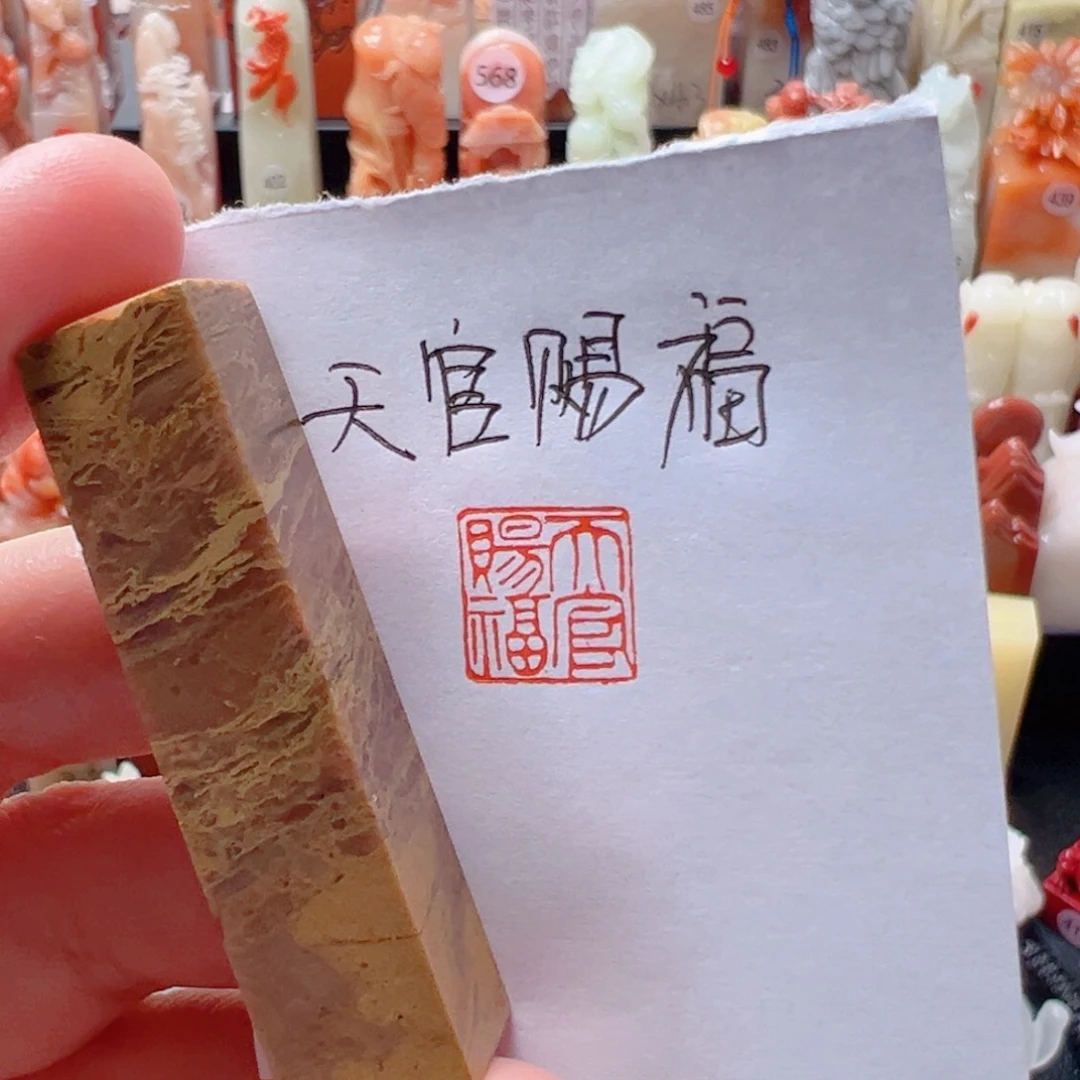 568
439
天官赐福
天官
賜福